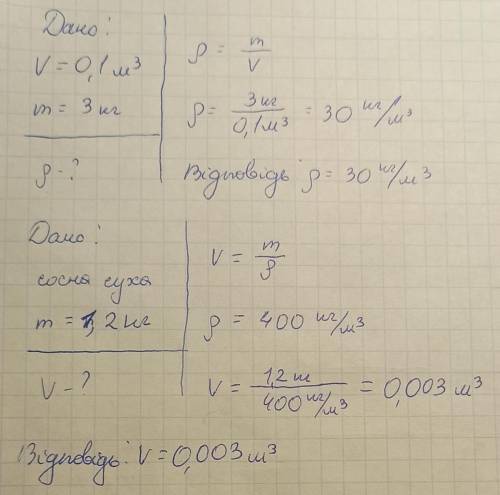 Дано:
V = 0,1 м³
m = 3 кг
ρ - ?
ρ = m/V
ρ = 3 кг / 0,1 м³ = 30 кг/м³
Відповідь: ρ = 30 кг/м³
Дано:
сосна суха
m = 1,2 кг
V - ?
V = m/ρ
ρ = 400 кг/м³
V = 1,2 кг / 400 кг/м³ = 0,003 м³
Відповідь: V = 0,003 м³